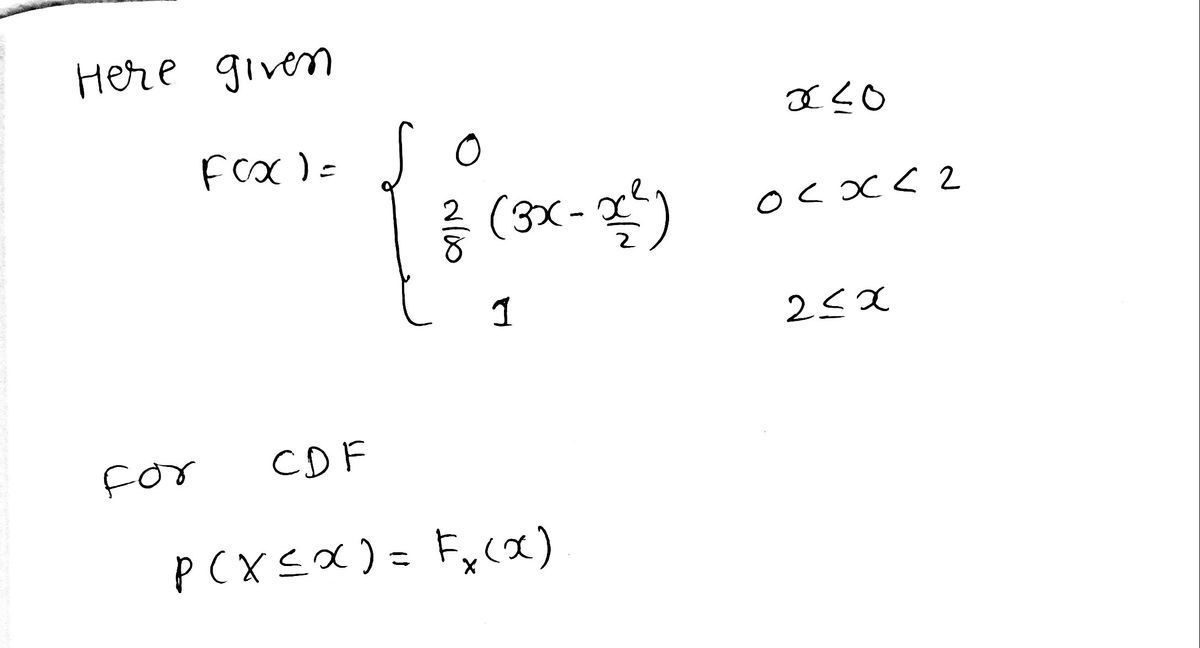 Here given
x ≤ 0
F(x) = { 0
2/8 (3x - x²/2) 0 < x < 2
1 2 ≤ x
For CDF
P(X ≤ x) = Fₓ(x)